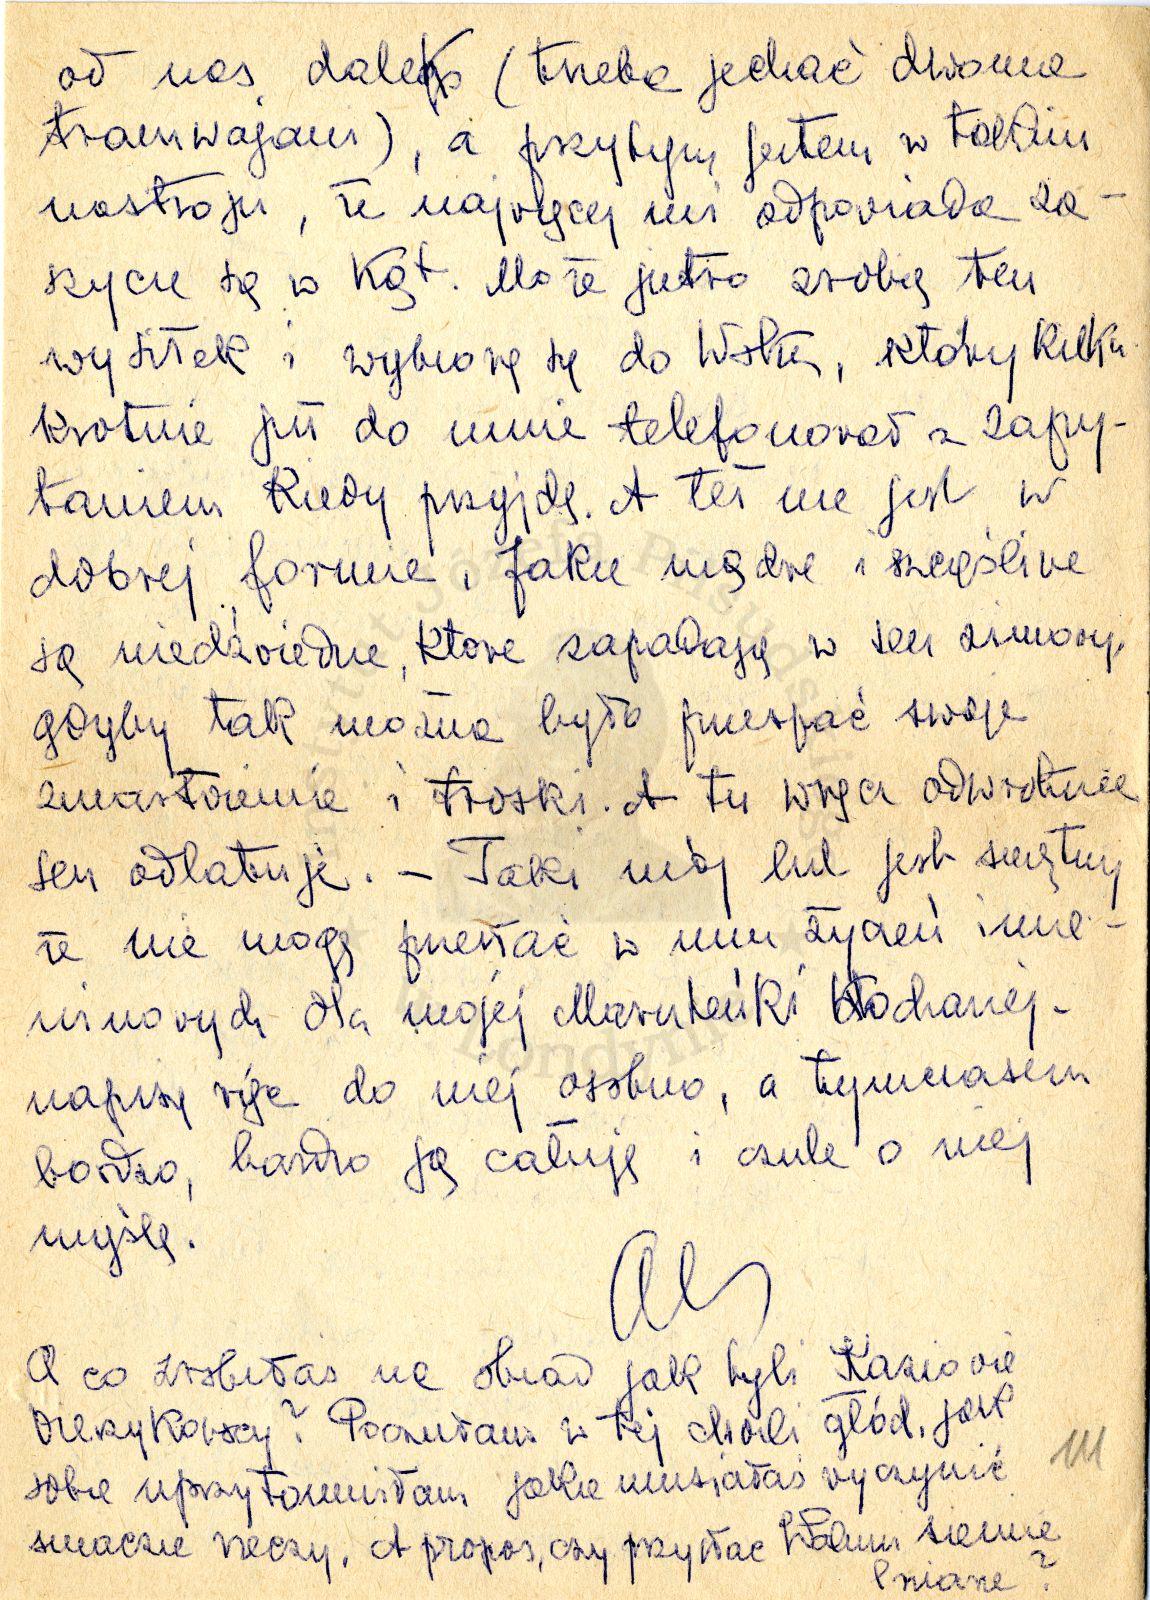 od nas daleko (trzeba jechać dwoma
tramwajami), a przytym jestem w takim
nastroju, że najwięcej mi odpowiada za-
szycie się w kąt. Może jutro zrobię ten
wysiłek i wybiorę się do który kilka
krotnie już do mnie telefonował z zapy-
taniem kiedy przyjdę. A też nie jest w
dobrej formie. Jakie mądre i szczęśliwe
są niedźwiedzie, które zapadają w sen zimowy,
gdyby tak można było przespać swoje
zmartwienie i troski. A tu wręcz odwrotnie
sen odlatuje. — Taki mój list jest smętny
że nie mogę przesłać w nim życzeń imie-
ninowych dla mojej Maruteńki kochanej -
napiszę więc do niej osobno, a tymczasem
bardzo, bardzo ją całuję i czule o niej
myślę.
Al
A co zrobiłaś na obiad jak byli Kaziowie
? Poczułam w tej chwili głód, jak
sobie uprzytomniłam jakie musiałaś wyczynić
smaczne rzeczy. A propos, czy przysłać Wam siemie
lniane?
111
Instytut Józefa Piłsudskiego
Londyn